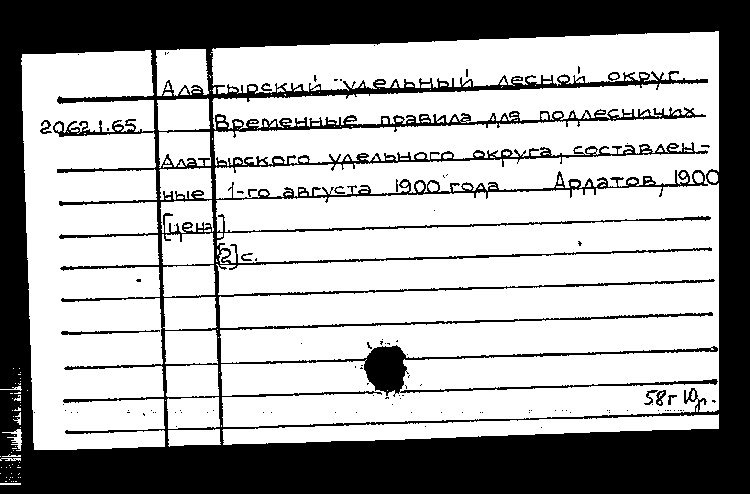 Алатырский удельный лесной округ.
2062.1.65. Временные правила для подлесничих
Алатырского удельного округа, составлен-
ные 1-го августа 1900 года Ардатов, 1900
[цена].
[2] с.
58г Юр.